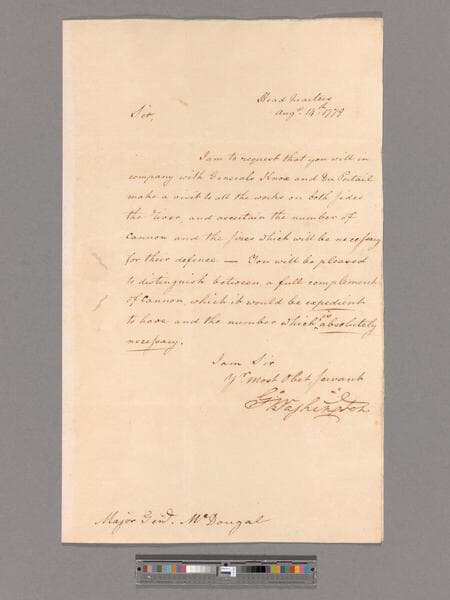 Head Quarters
Augt. 14th. 1779
Sir,
I am to request that you will in
company with Generals Knox and Du Portail
make a visit to all the works on both sides
the River, and ascertain the number of
Cannon and the sizes which will be necessary
for their defence — You will be pleased
to distinguish between, a full complement
of Cannon, which it would be expedient
to have and the number which is absolutely
necessary.
I am Sir
Yr. most Obet servant
Go Washington
Major Genl. McDougal